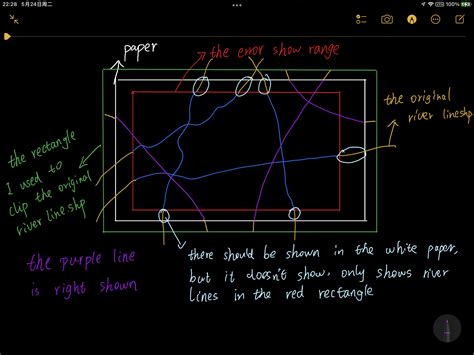 22:28 5月24日周二
100%
paper
the error show range
the original
river lineshp
the rectangle
I used to
clip the original
river lineshp
the purple line
is right shown
there should be shown in the white paper,
but it doesn't show. only shows river
lines in the red rectangle